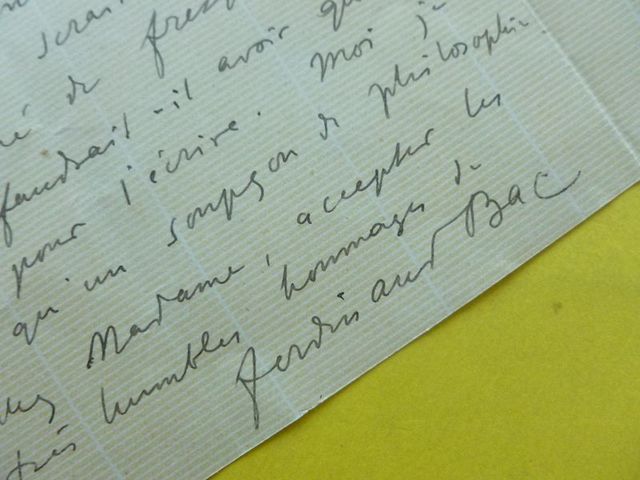 serait
né de fres
faudrait-il avoir qu
pour l'écrire. Moi j'
qu'un soupçon de philosophie.
Madame, accepter les
très humbles hommages de
Ferdinand Bac